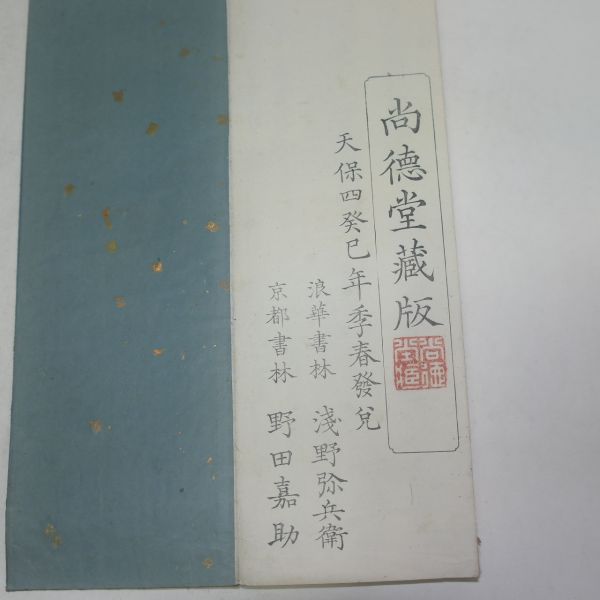 尚德堂藏版
尚德堂
天保四癸巳年季春發兌
浪華書林 淺野弥兵衛
京都書林 野田嘉助